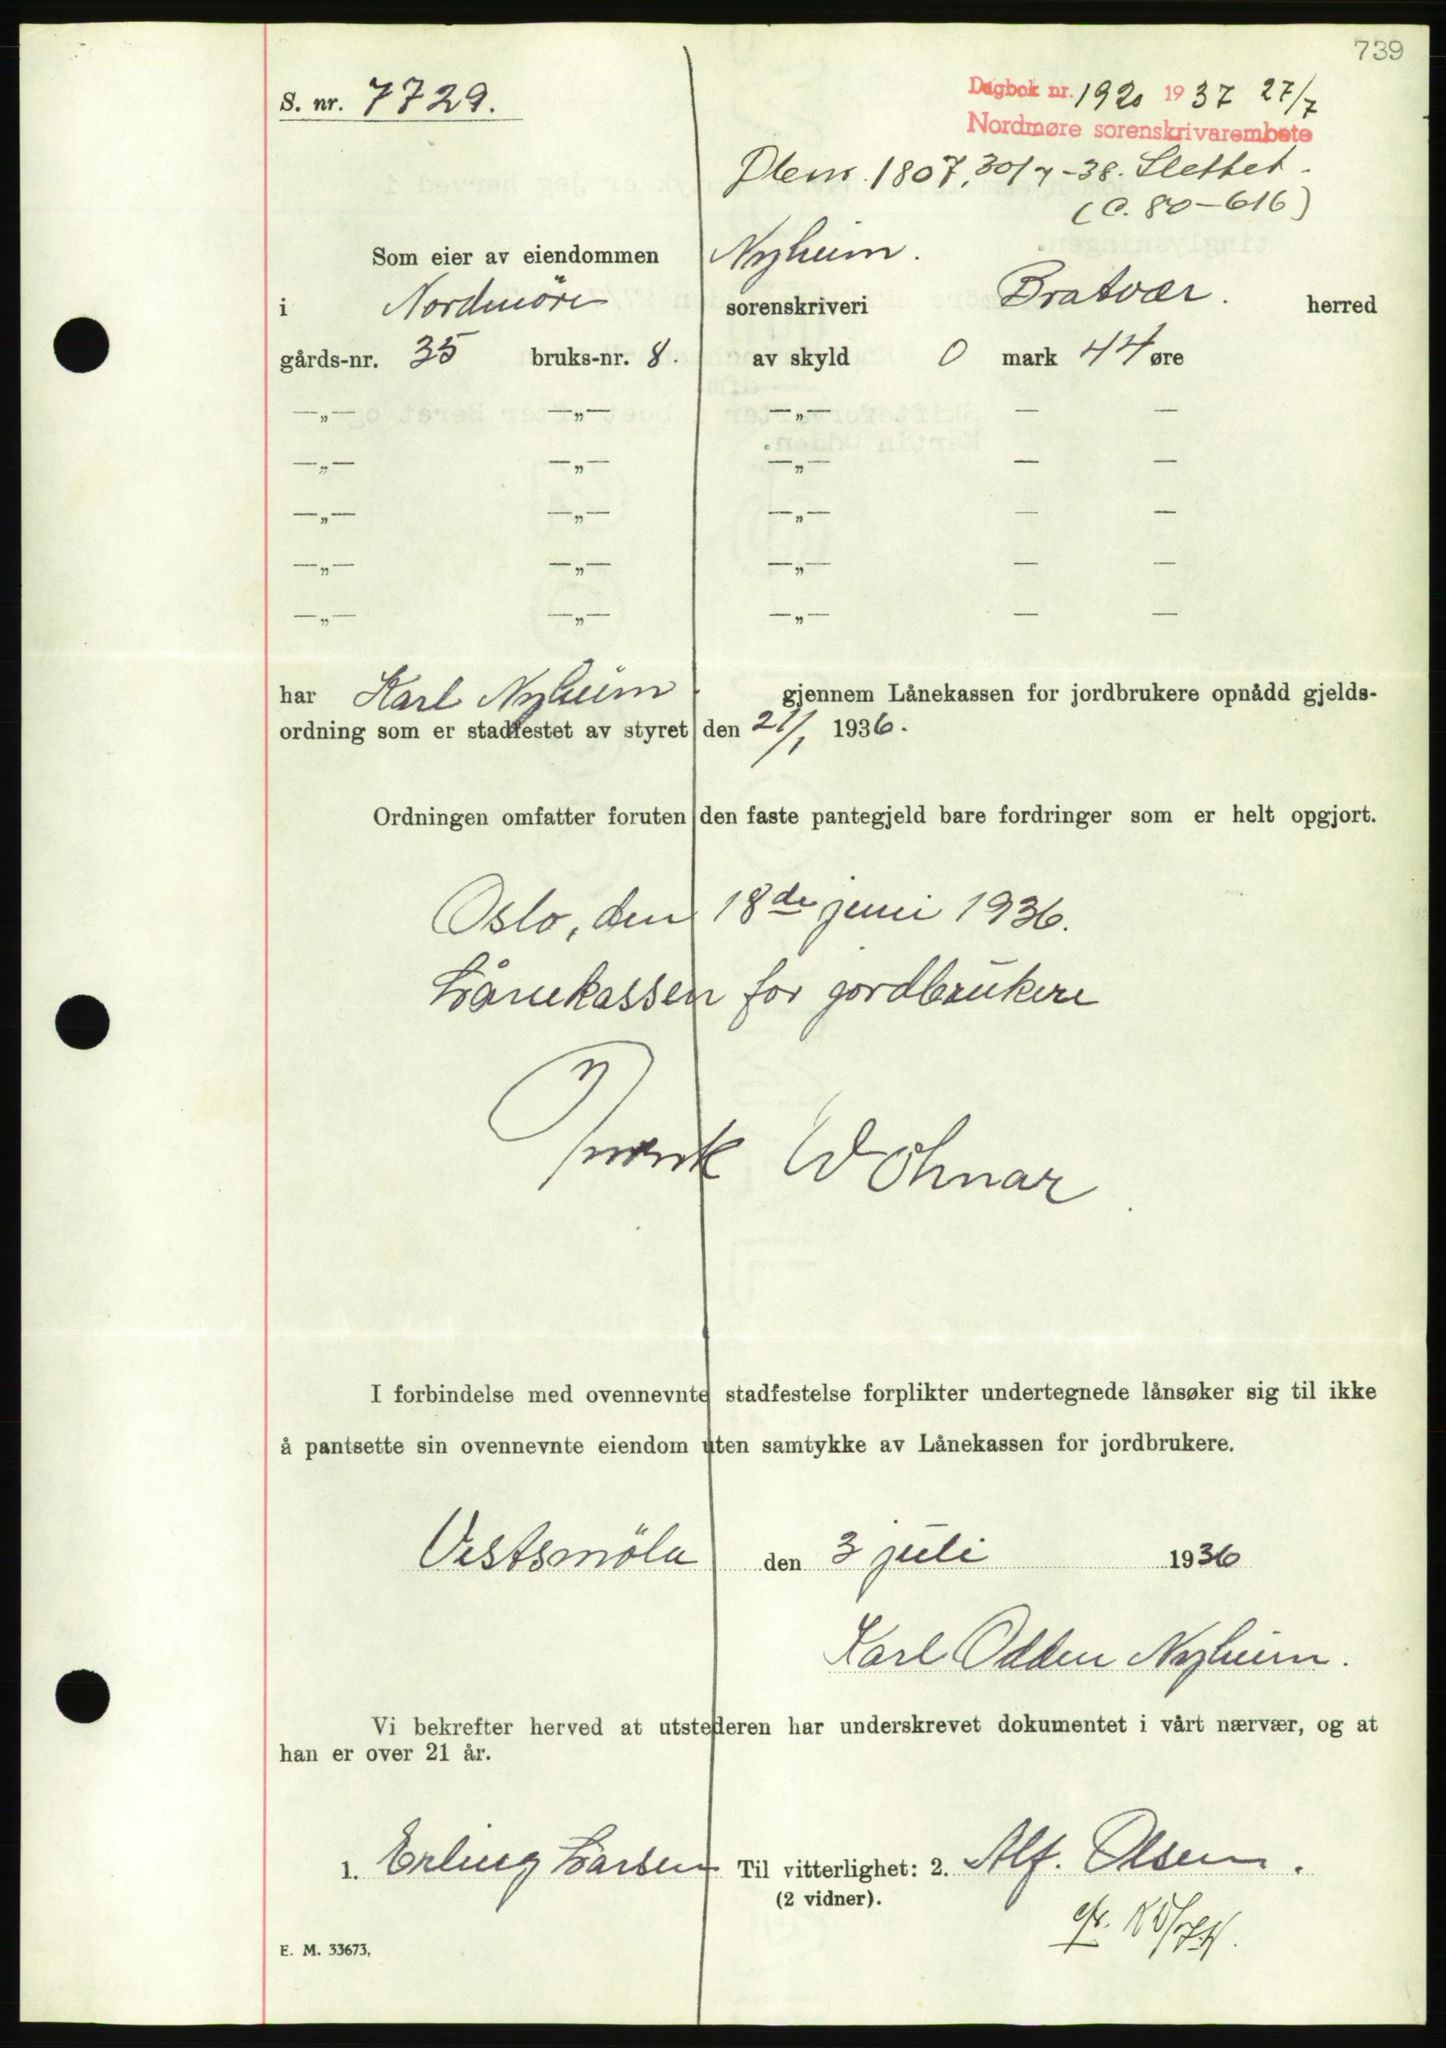 739
S. nr. 7729.
Dagbok nr. 1920 1937 27/7
Nordmøre sorenskrivarembete
1807, 30/7-38. Slettet.
(C. 80-616)
Som eier av eiendommen Nyheim.
i Nordmöre sorenskriveri Bratvær. herred
gårds-nr. 35 bruks-nr. 8. av skyld 0 mark 44 øre
—„— —„— —„— — —
—„— —„— —„— — —
—„— —„— —„— — —
—„— —„— —„— — —
—„— —„— —„— — —
har Karl Nyheim. gjennem Lånekassen for jordbrukere opnådd gjelds-
ordning som er stadfestet av styret den 21/1 1936.
Ordningen omfatter foruten den faste pantegjeld bare fordringer som er helt opgjort.
Oslo, den 18de juni 1936.
Lånekassen for jordbrukere
I forbindelse med ovennevnte stadfestelse forplikter undertegnede lånsøker sig til ikke
å pantsette sin ovennevnte eiendom uten samtykke av Lånekassen for jordbrukere.
Vestsmöla den 3 juli 1936
Karl Odden Nyheim.
Vi bekrefter herved at utstederen har underskrevet dokumentet i vårt nærvær, og at
han er over 21 år.
1. Erling Larsen Til vitterlighet: 2. Alf. Olsen.
(2 vidner).
E. M. 33673,